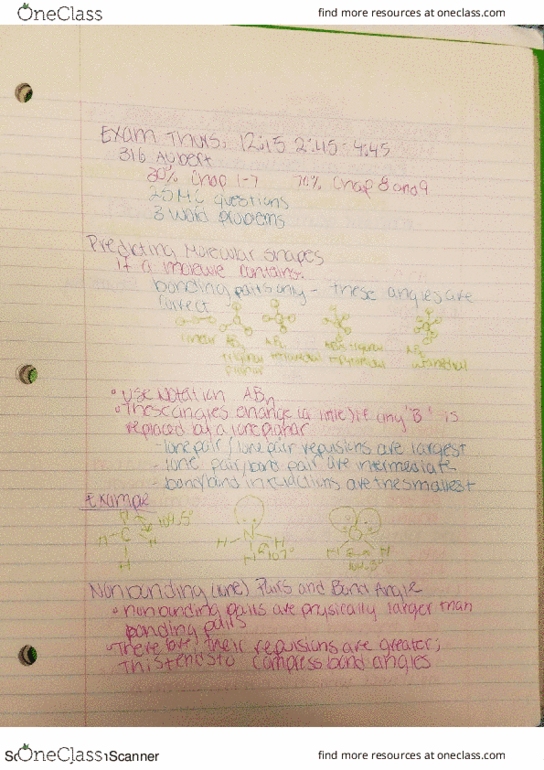 OneClass find more resources at oneclass.com
Exam Thurs, 12:15 2:45-4:45
316 Aubert
30% Chap 1-7 70% Chap 8 and 9
20 MC questions
3 word problems
Predicting Molecular Shapes
if a molecule contains:
bonding pairs only - these angles are
correct
linear AB3 trigonal
planar
• Use Notation ABn
• These angles change (a little) if any "B" is
replaced by a lone
- lone pair/lone pair repulsions are largest
- lone pair/bond pair are intermediate
- bond/bond interactions are the smallest
Example
H C H 109.5°
H
H N H
H 107°
H H
104.5°
Nonbonding (lone) Pairs and Bond Angle
• nonbonding pairs are physically larger than
bonding pairs
• Therefore, their repulsions are greater;
this tends to compress bond angles
OneClass Scanner find more resources at oneclass.com